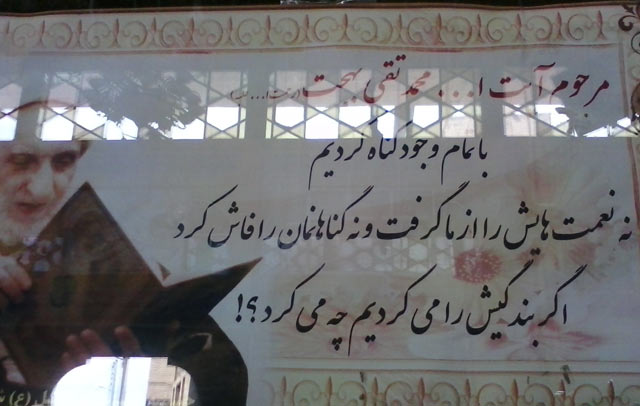 مرحوم آیت ا... محمد تقی بهجت (رحمت ا... علیه)
با تمام وجود گناه کردیم
نه نعمت هایش را از ما گرفت و نه گناهانمان را فاش کرد
اگر بندگیش را می کردیم چه می کرد؟!
(ع)